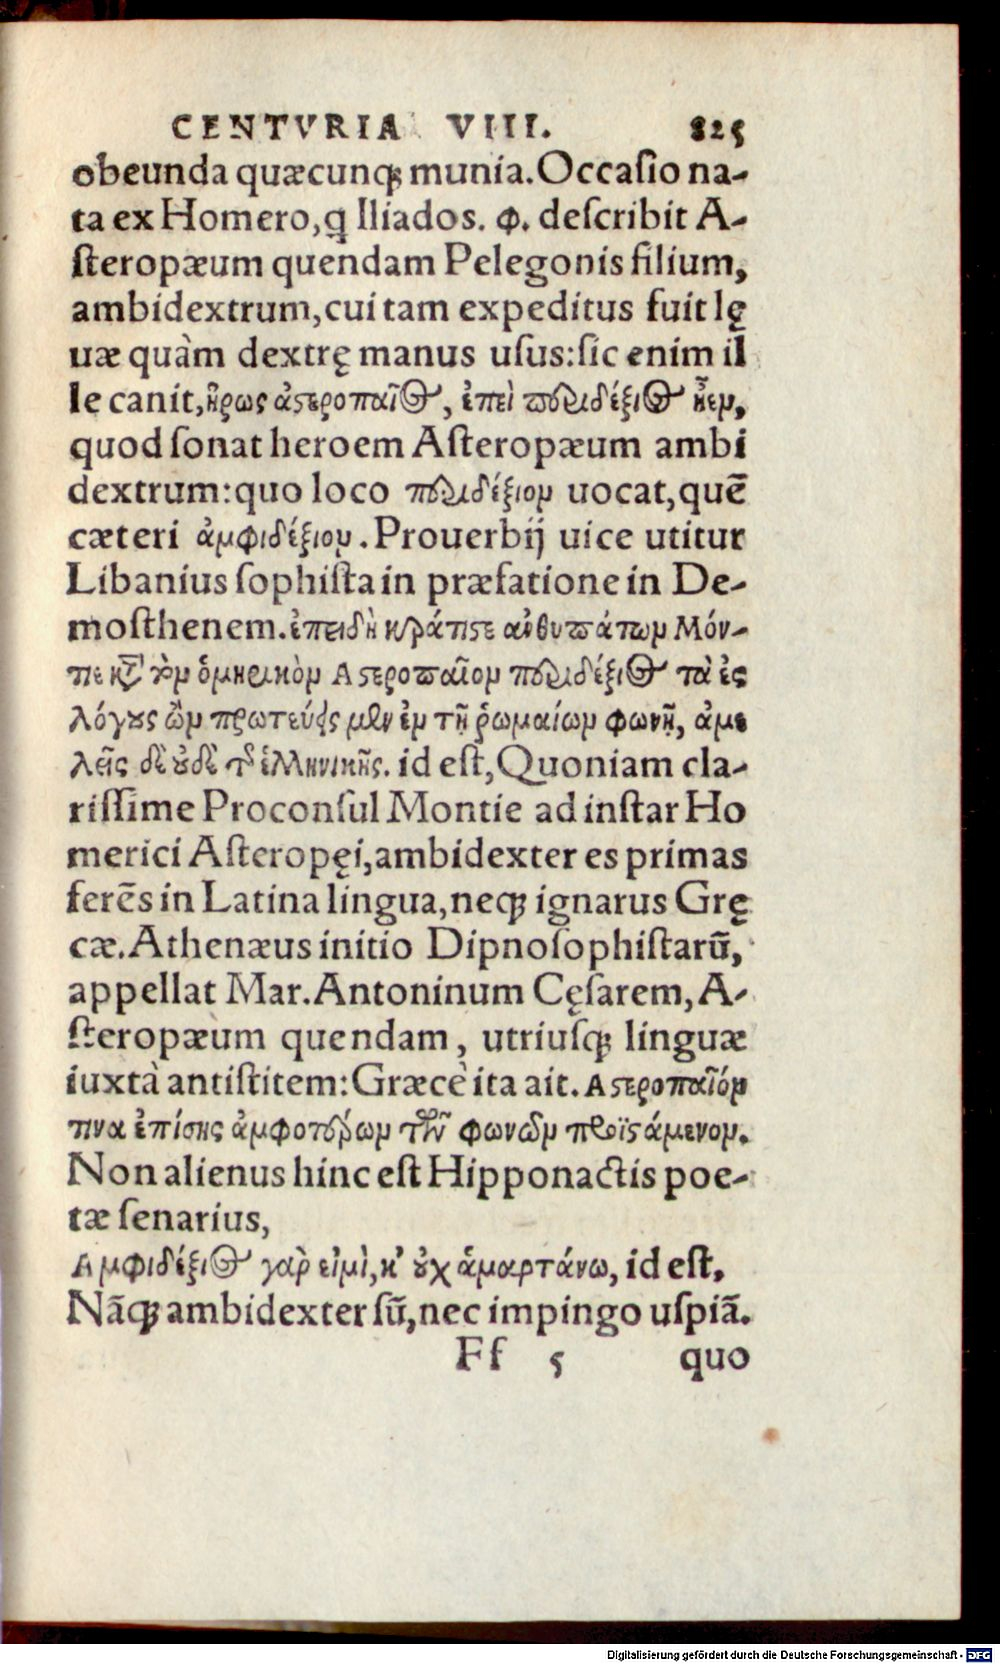 CENTVRIA VIII. 825
obeunda quæcunqꝫ munia. Occaſio na-
ta ex Homero, ꝗ Iliados. φ. deſcribit A-
ſteropæum quendam Pelegonis filium,
ambidextrum, cui tam expeditus fuit lę
uæ quàm dextrę manus uſus: ſic enim il
le canit, ἥρως ἀϛεροπαῖος, ἐπεὶ περιδέξιος ἦεν,
quod ſonat heroem Aſteropæum ambi
dextrum: quo loco περιδέξιον uocat, quẽ
cæteri ἀμφιδέξιον. Prouerbij uice utitur
Libanius ſophiſta in præfatione in De-
moſthenem. ἐπειδὴ κράτιϛε ἀνθυπάτων Μόν-
τιε κατ̀ τὸν ὁμηρικὸν Αϛεροπαῖον περιδέξιος τὰ ἐς
λόγους ὢν πρωτεύεις μὲν ἐν τῇ ῥωμαίων φωνῇ, ἀμε
λεῖς δὲ οὐδὲ τῆς ἑλληνικῆς. id eſt, Quoniam cla-
riſſime Proconſul Montie ad inſtar Ho
merici Aſteropęi, ambidexter es primas
ferẽs in Latina lingua, neqꝫ ignarus Grę
cæ. Athenæus initio Dipnoſophiſtarũ,
appellat Mar. Antoninum Cęſarem, A-
ſteropæum quendam, utriuſqꝫ linguæ
iuxtà antiſtitem: Græcè ita ait. Αϛεροπαῖόν
τινα ἐπίσης ἀμφοτέρων τῶν φωνῶν προϊϛάμενον.
Non alienus hinc eſt Hipponactis poe-
tæ ſenarius,
Αμφιδέξιος γὰρ εἰμὶ, κ' οὐχ ἁμαρτάνω, id eſt,
Nãqꝫ ambidexter sũ, nec impingo uſpiã.
Ff 5 quo
Digitalisierung gefördert durch die Deutsche Forschungsgemeinschaft - DFG